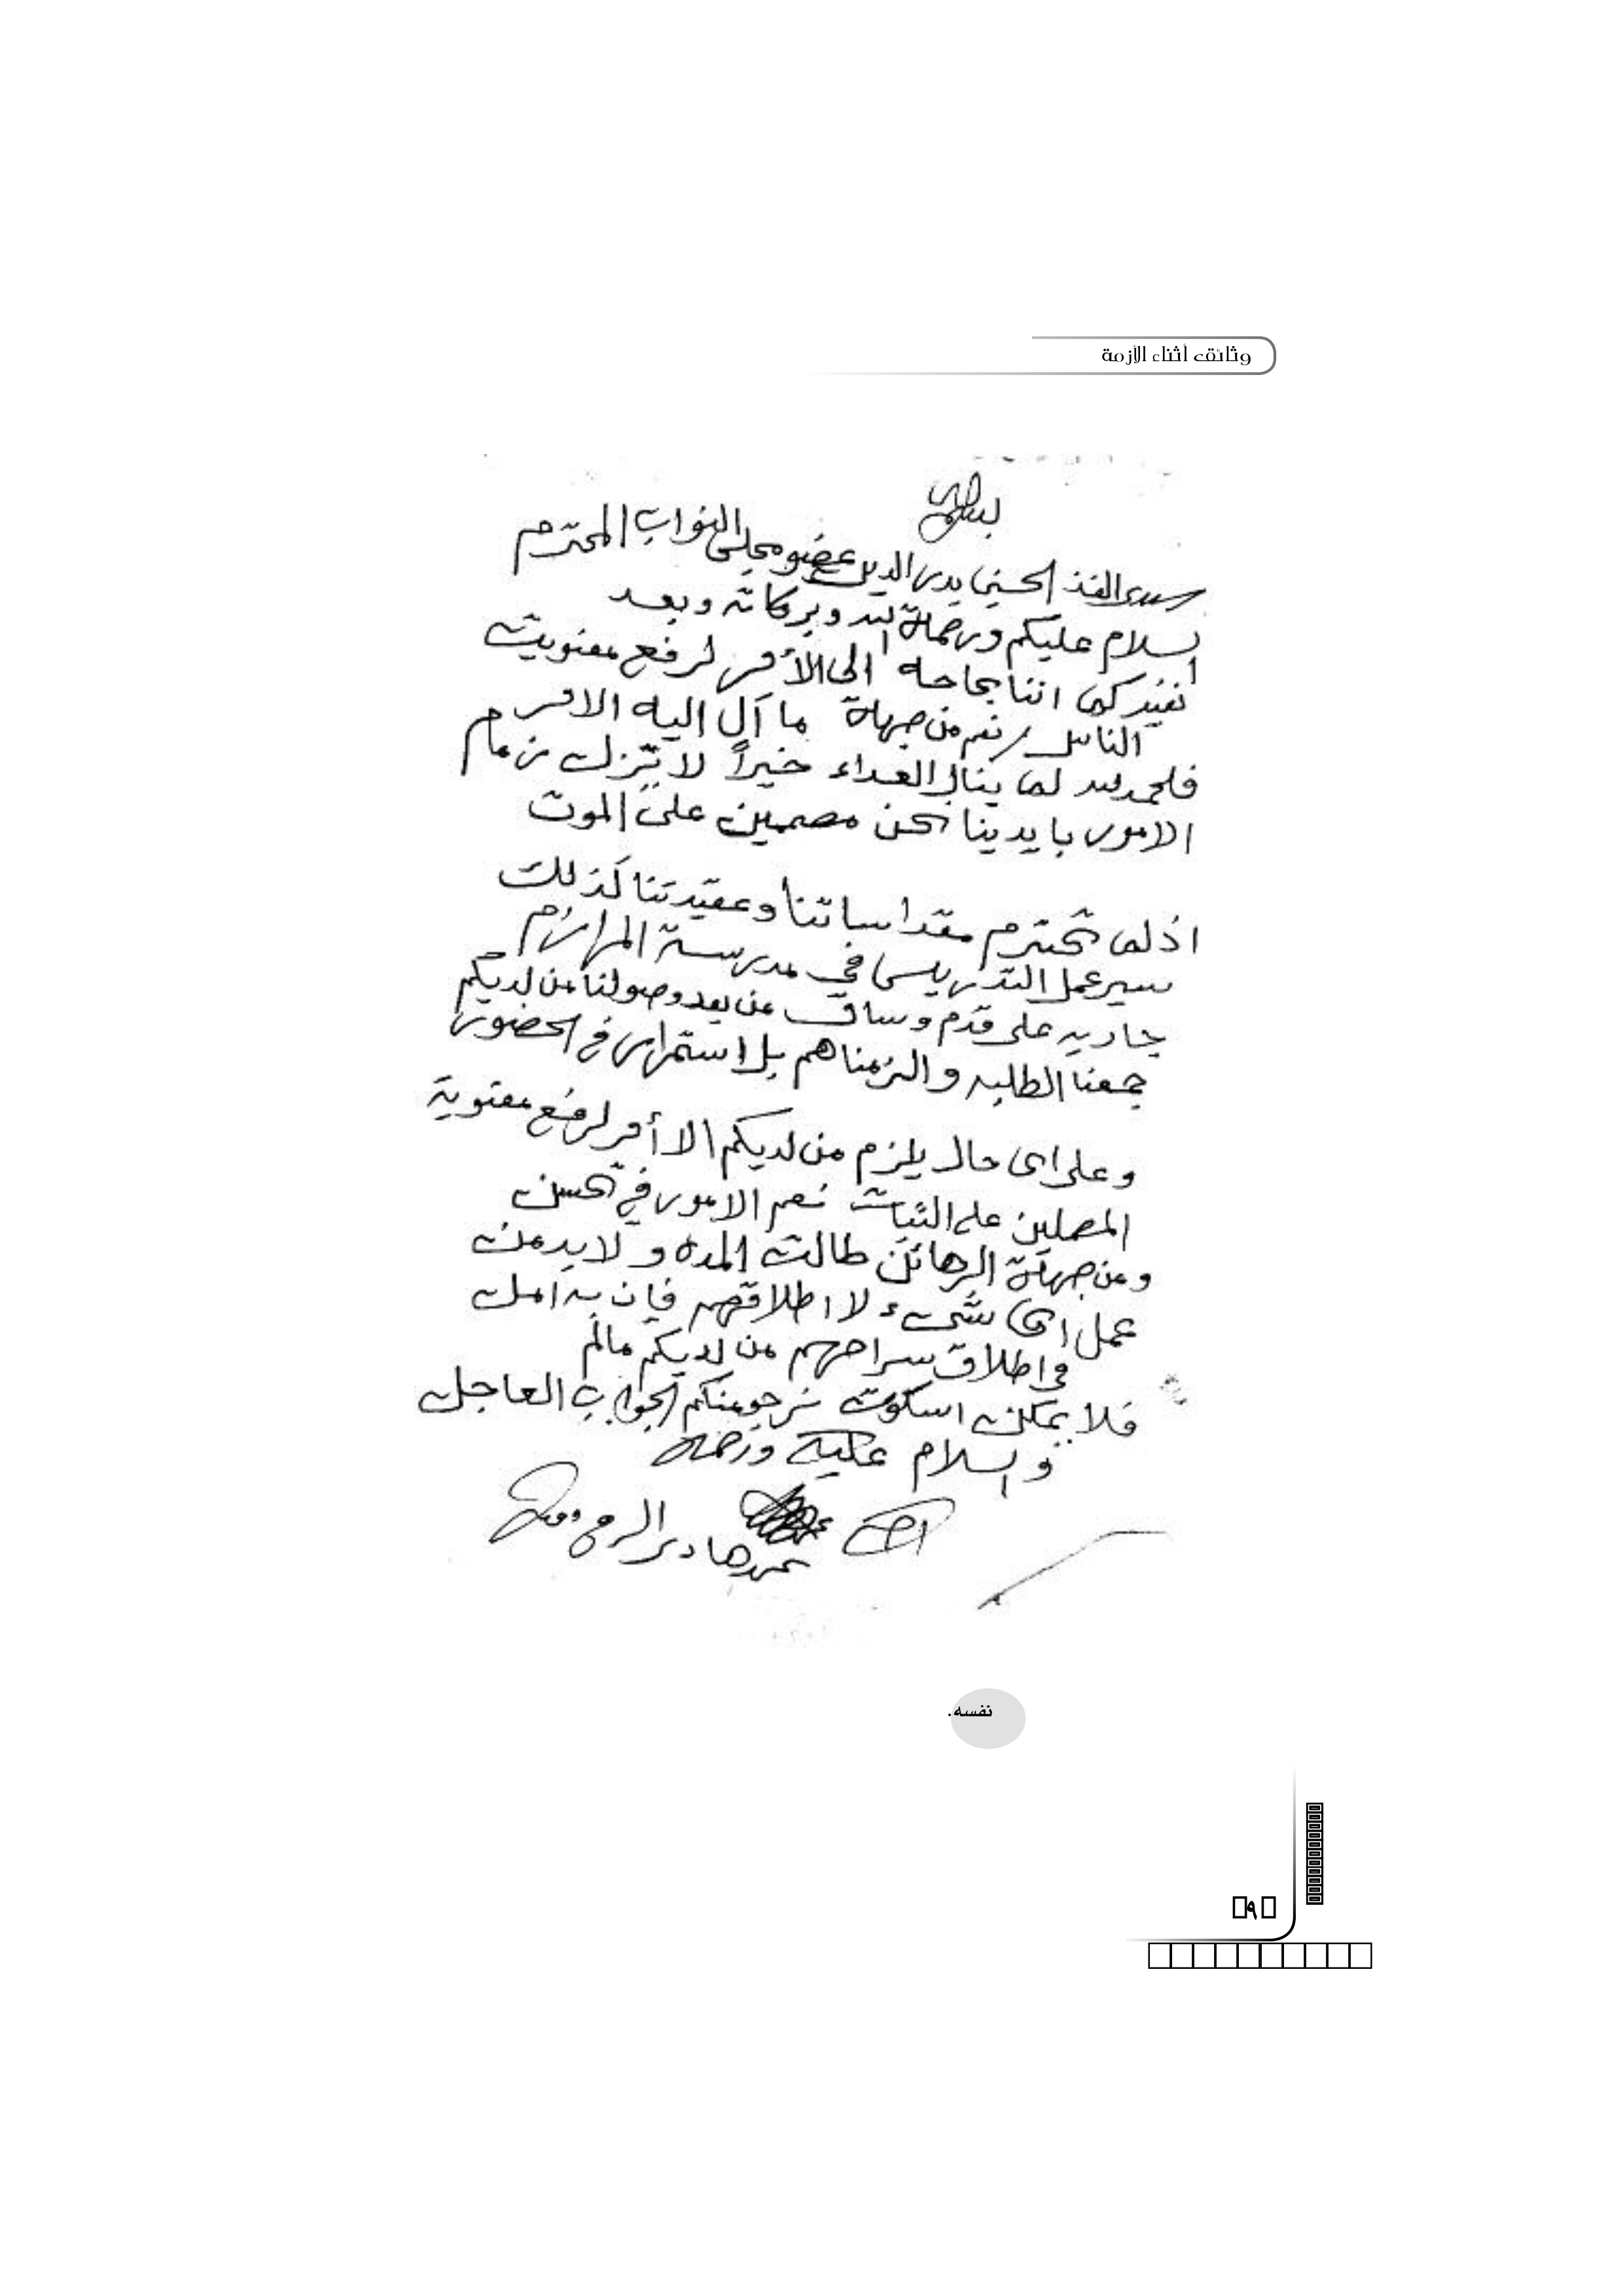 وثائق أثناء الأزمة
سيدي الفذ الحسين بدر الدين عضو مجلس النواب المحترم
السلام عليكم ورحماة الله وبركاته وبعد
نفيدكم اننا بحاجه الى الأمر لرفع معنويت
الناس نعم من جهاة ما آل اليه الامر
فلحمد لله لم ينال العداء خيراً لا تزل زمام
الامور بايدينا نحن مصممين على الموت
اذ لم تحترم مقداساتنا وعقيدتنا كذلك
سير عمل التدريس في مدرسة المرازم
جاريه على قدم وساق من بعد وصولنا من لديكم
جمعنا الطلبه والزمناهم بل استمرار في الحضور
وعلى اي حال يلزم من لديكم الا أمر لرفع معنوية
المصلين على الثبات نعم الامور في تحسن
ومن جهاة الرهائن طالت المده و لابد من
عمل اي شيء لا اطلاقهم فإن به امل
في اطلاق سراحهم من لديكم مالم
فلا يمكن اسكوت نرجو منكم الجواب العاجل
والسلام عليكم ورحمة
نفسه.
٩